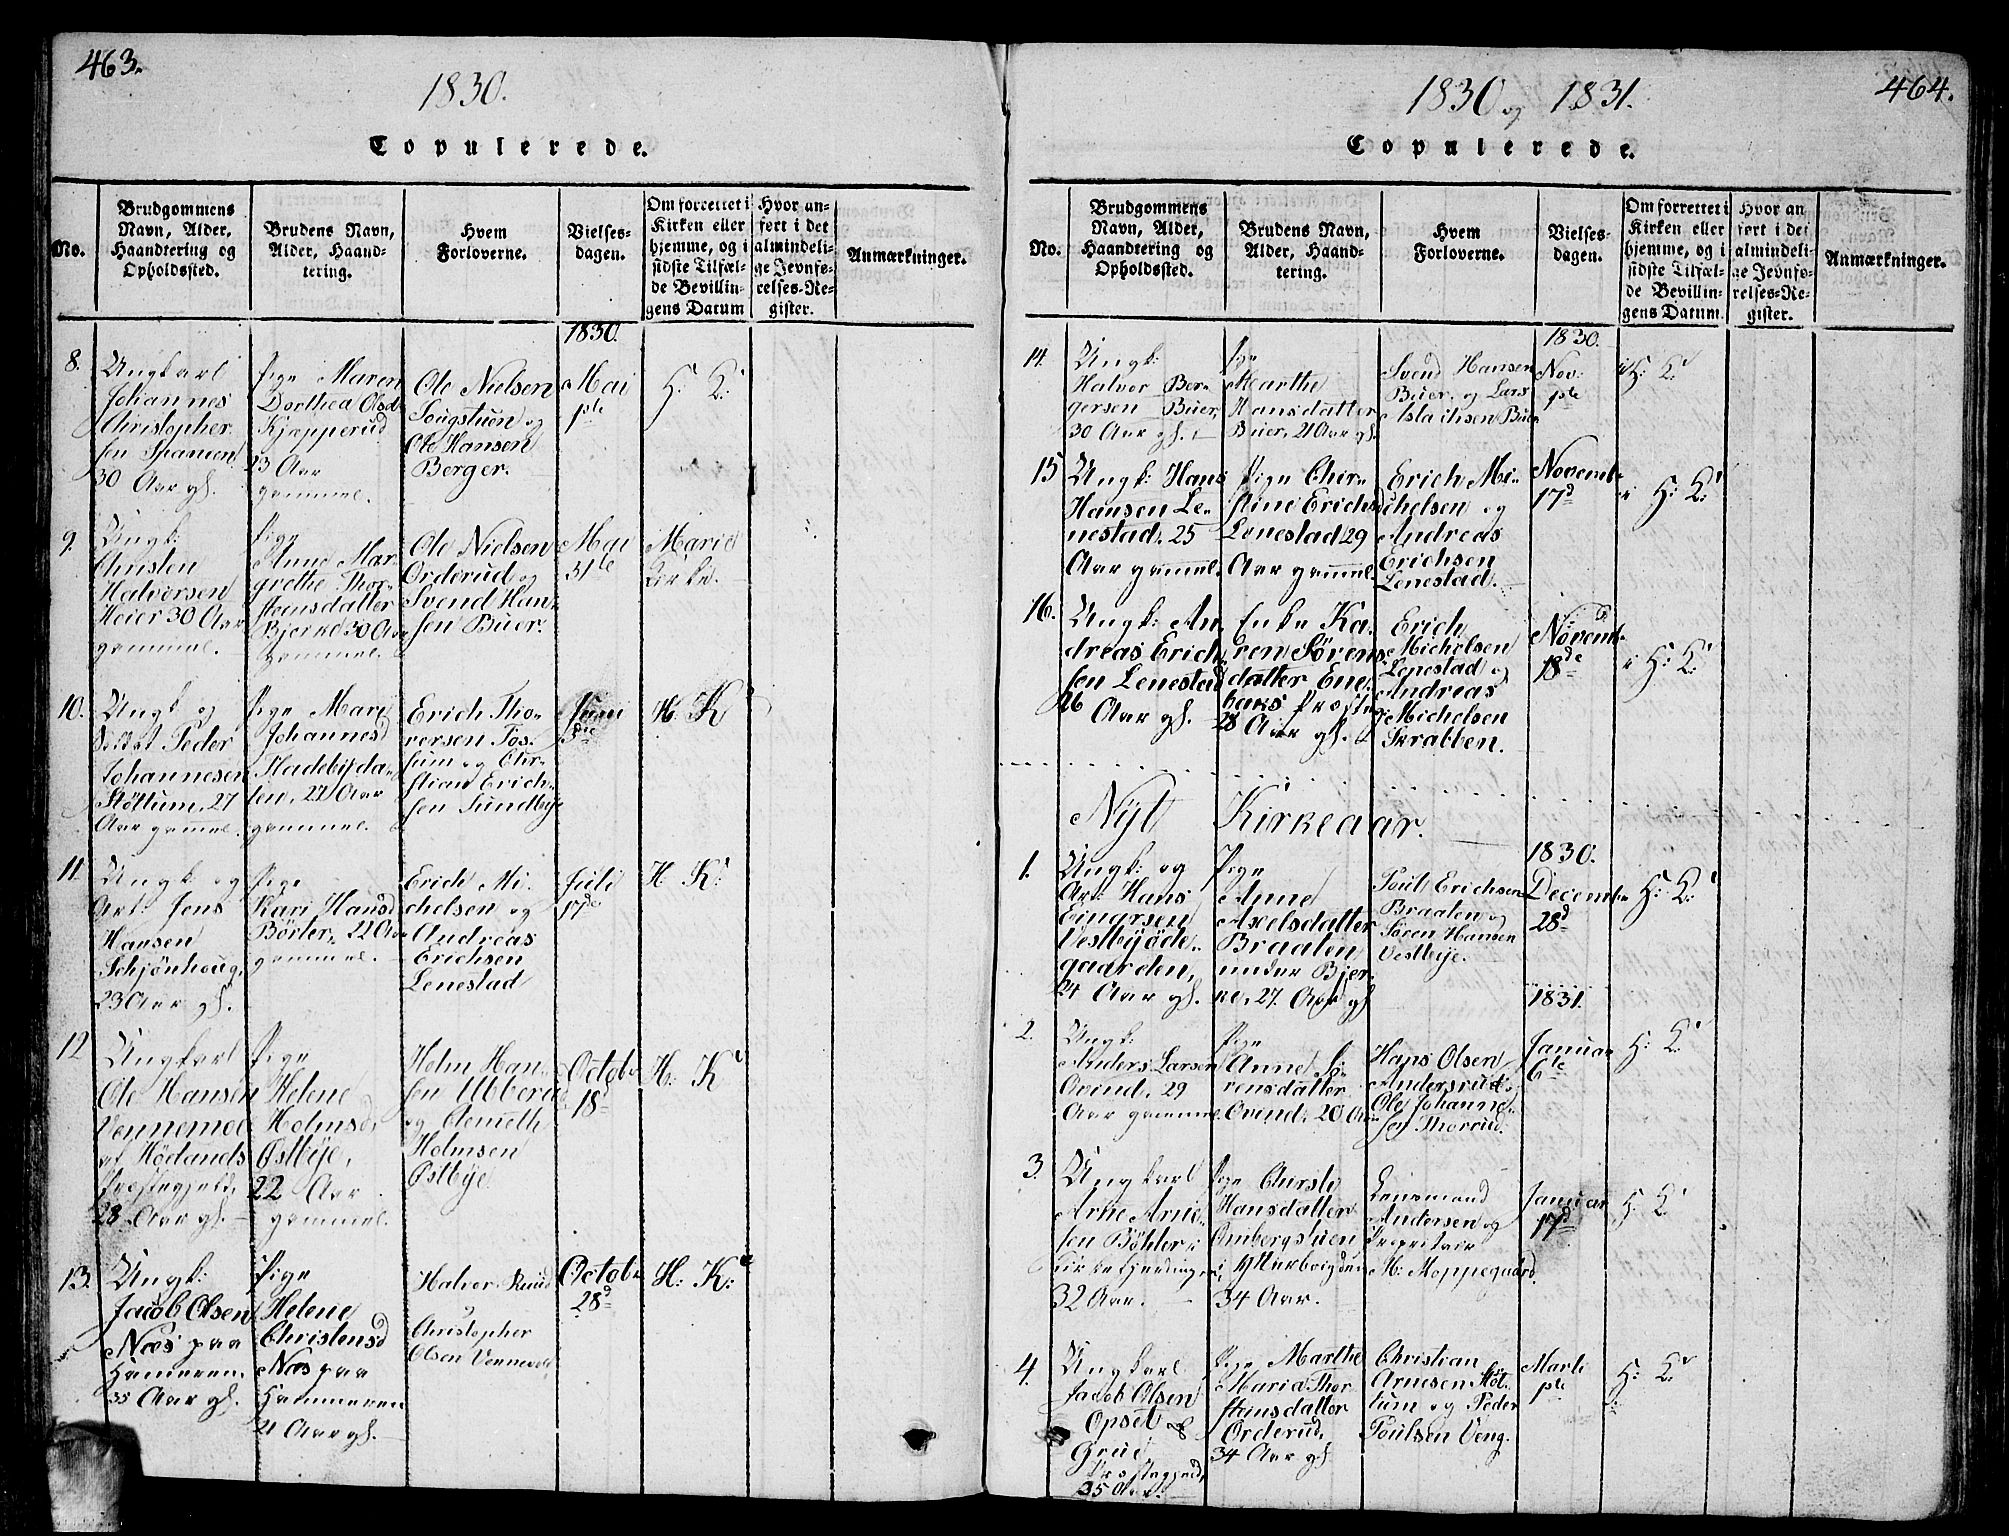 463.
1830.
Copulerede.
No.
Brudgommens
Navn, Alder,
Haandtering og
Opholdssted.
Brudens Navn,
Alder, Haand-
tering.
Hvem
Forloverne.
Vielses-
dagen.
Om forrettet i
Kirken eller
hjemme, og i
sidste Tilfæl-
de Bevillin-
gens Datum
Hvor an-
ført i det
almindeli-
ge Jevnfø-
relses-Re-
gister.
Anmærkninger.
1830.
8.
Ungkarl
Johannes
Christopher-
sen Spanien
30 Aar gl.
Pige Maren
Dorthea Olsd
Kjopperud
23 Aar
gammel.
Ole Nielsen
Tougstuen og
Ole Hansen
Berger.
Mai
1ste
H: K:
9.
Ungk:
Christen
Halvorsen
Heier 30 Aar
gammel.
Pige
Anne Mar-
grethe Thor-
steinsdatter
Bjerke 30 Aar
gammel.
Ole Nielsen
Orderud og
Svend Han-
sen Buer.
Mai
31te
Marie
Kirke.
10.
Ungk og
Soldat Peder
Johannesen
Støttum, 27
Aar gammel.
Pige Mari
Johannesd
Stadebyda-
len, 22 Aar
gammel.
Erich Tho-
rersen Fos-
sum og Chri-
stian Erich-
sen Sundbye
Juni
3die
H: K
11.
Ungk og
Art: Jens
Hansen
Schjønhoug,
23 Aar gl.
Pige
Kari Hansd
Børter, 22 Aar
gammel.
Erich Mi-
chelsen og
Andreas
Erichsen
Lenestad
Juli
17de
H K:
12
Ungkarl
Ole Hansen
Vennemoe
af Hødlands
Præstegjeld,
28 Aar gl.
Pige
Helene
Holmsd,
Østbye,
22 Aar
gammel.
Holm Han-
sen Ubberud
og Clemeth
Holmsen
Østbye
Octob:
18d
H: K
13.
Ungk:
Jacob Olsen
Næs paa
Hammeren.
35 Aar gl.
Pige
Helene
Christensd
Næs paa
Hammeren
21 Aar gl.
Halvor Ruud
og
Christopher
Olsen Vennevold
Octob:
28d
H: K:
464.
1830 og 1831.
Copulerede.
No.
Brudgommens
Navn, Alder,
Haandtering og
Opholdssted.
Brudens Navn,
Alder, Haand-
tering.
Hvem
Forloverne.
Vielses-
dagen.
Om forrettet i
Kirken eller
hjemme, og i
sidste Tilfæl-
de Bevillin-
gens Datum.
Hvor an
ført i det
almindeli-
ge Jevnfø-
relses-Re-
gister.
Anmærkninger.
1830.
14.
Ungk:
Halvor Ber-
gersen Buer,
30 Aar gl.
Pige
Marthe
Hansdatter
Buer, 21 Aar gl.
Svend Hansen
Buer, og Lars
Aslachsen Buer
Nov:
1ste
i H: K:
15
Ungk: Hans
Hansen Le-
nestad. 25
Aar gammel.
Pige Chir-
stine Erichsd
Lenestad 29
Aar gammel.
Erich Mi-
chelsen og
Andreas
Erichsen
Lenestad.
Novemb:
17d
i H: K:
16.
Ungk: An-
dreas Erich-
sen Lenestad
26
Aar gl.
Enke Ka-
ren Sørens-
datter Ene-
baks Præstegj
28 Aar gl.
Erich
Michelsen
Lenestad og
Andreas
Michelsen
Skrabben.
Novemb:
18de
i H: K:
Nyt Kirkeaar.
1830.
1.
Ungk: og
Art: Hans
Einarsen
Vestbyøde-
gaarden,
24 Aar gl.
Pige
Anne
Axelsdatter
Braaten
under Bjer-
ke, 27. Aar gl
Poul Erichsen
Braaten og
Søren Hansen
Vestbye.
Decemb:
28d
H: K:
1831.
2.
Ungk:
Anders Larsen
Ovind, 29
Aar gammel.
Pige
Anne Sø-
rensdatter
Ovind, 20 Aar
Hans Olsen
Andersrud
Ole Johanne-
sen Thorrud.
Januar
6te
H: K:
3.
Ungkarl
Arne Arne-
sen Bøhler i
Kirkefjerdingen,
32 Aar.
Pige Chirsti
Hansdatter
Ombergstuen
i Mærkvigden
34 Aar.
Lensmand
Andersen og
Proprietair
M: Moppegaard.
Januar
17d
H: K:
4.
Ungkarl
Jacob Olsen
Opset af
Grue
Præstegjeld,
35 Aar.
Pige Marthe
Maria Thor-
steinsdatter
Orderud,
34 Aar gl
Christian
Arnesen Støt-
tum og Peder
Poulsen Veng.
Marti
1ste
H: K: